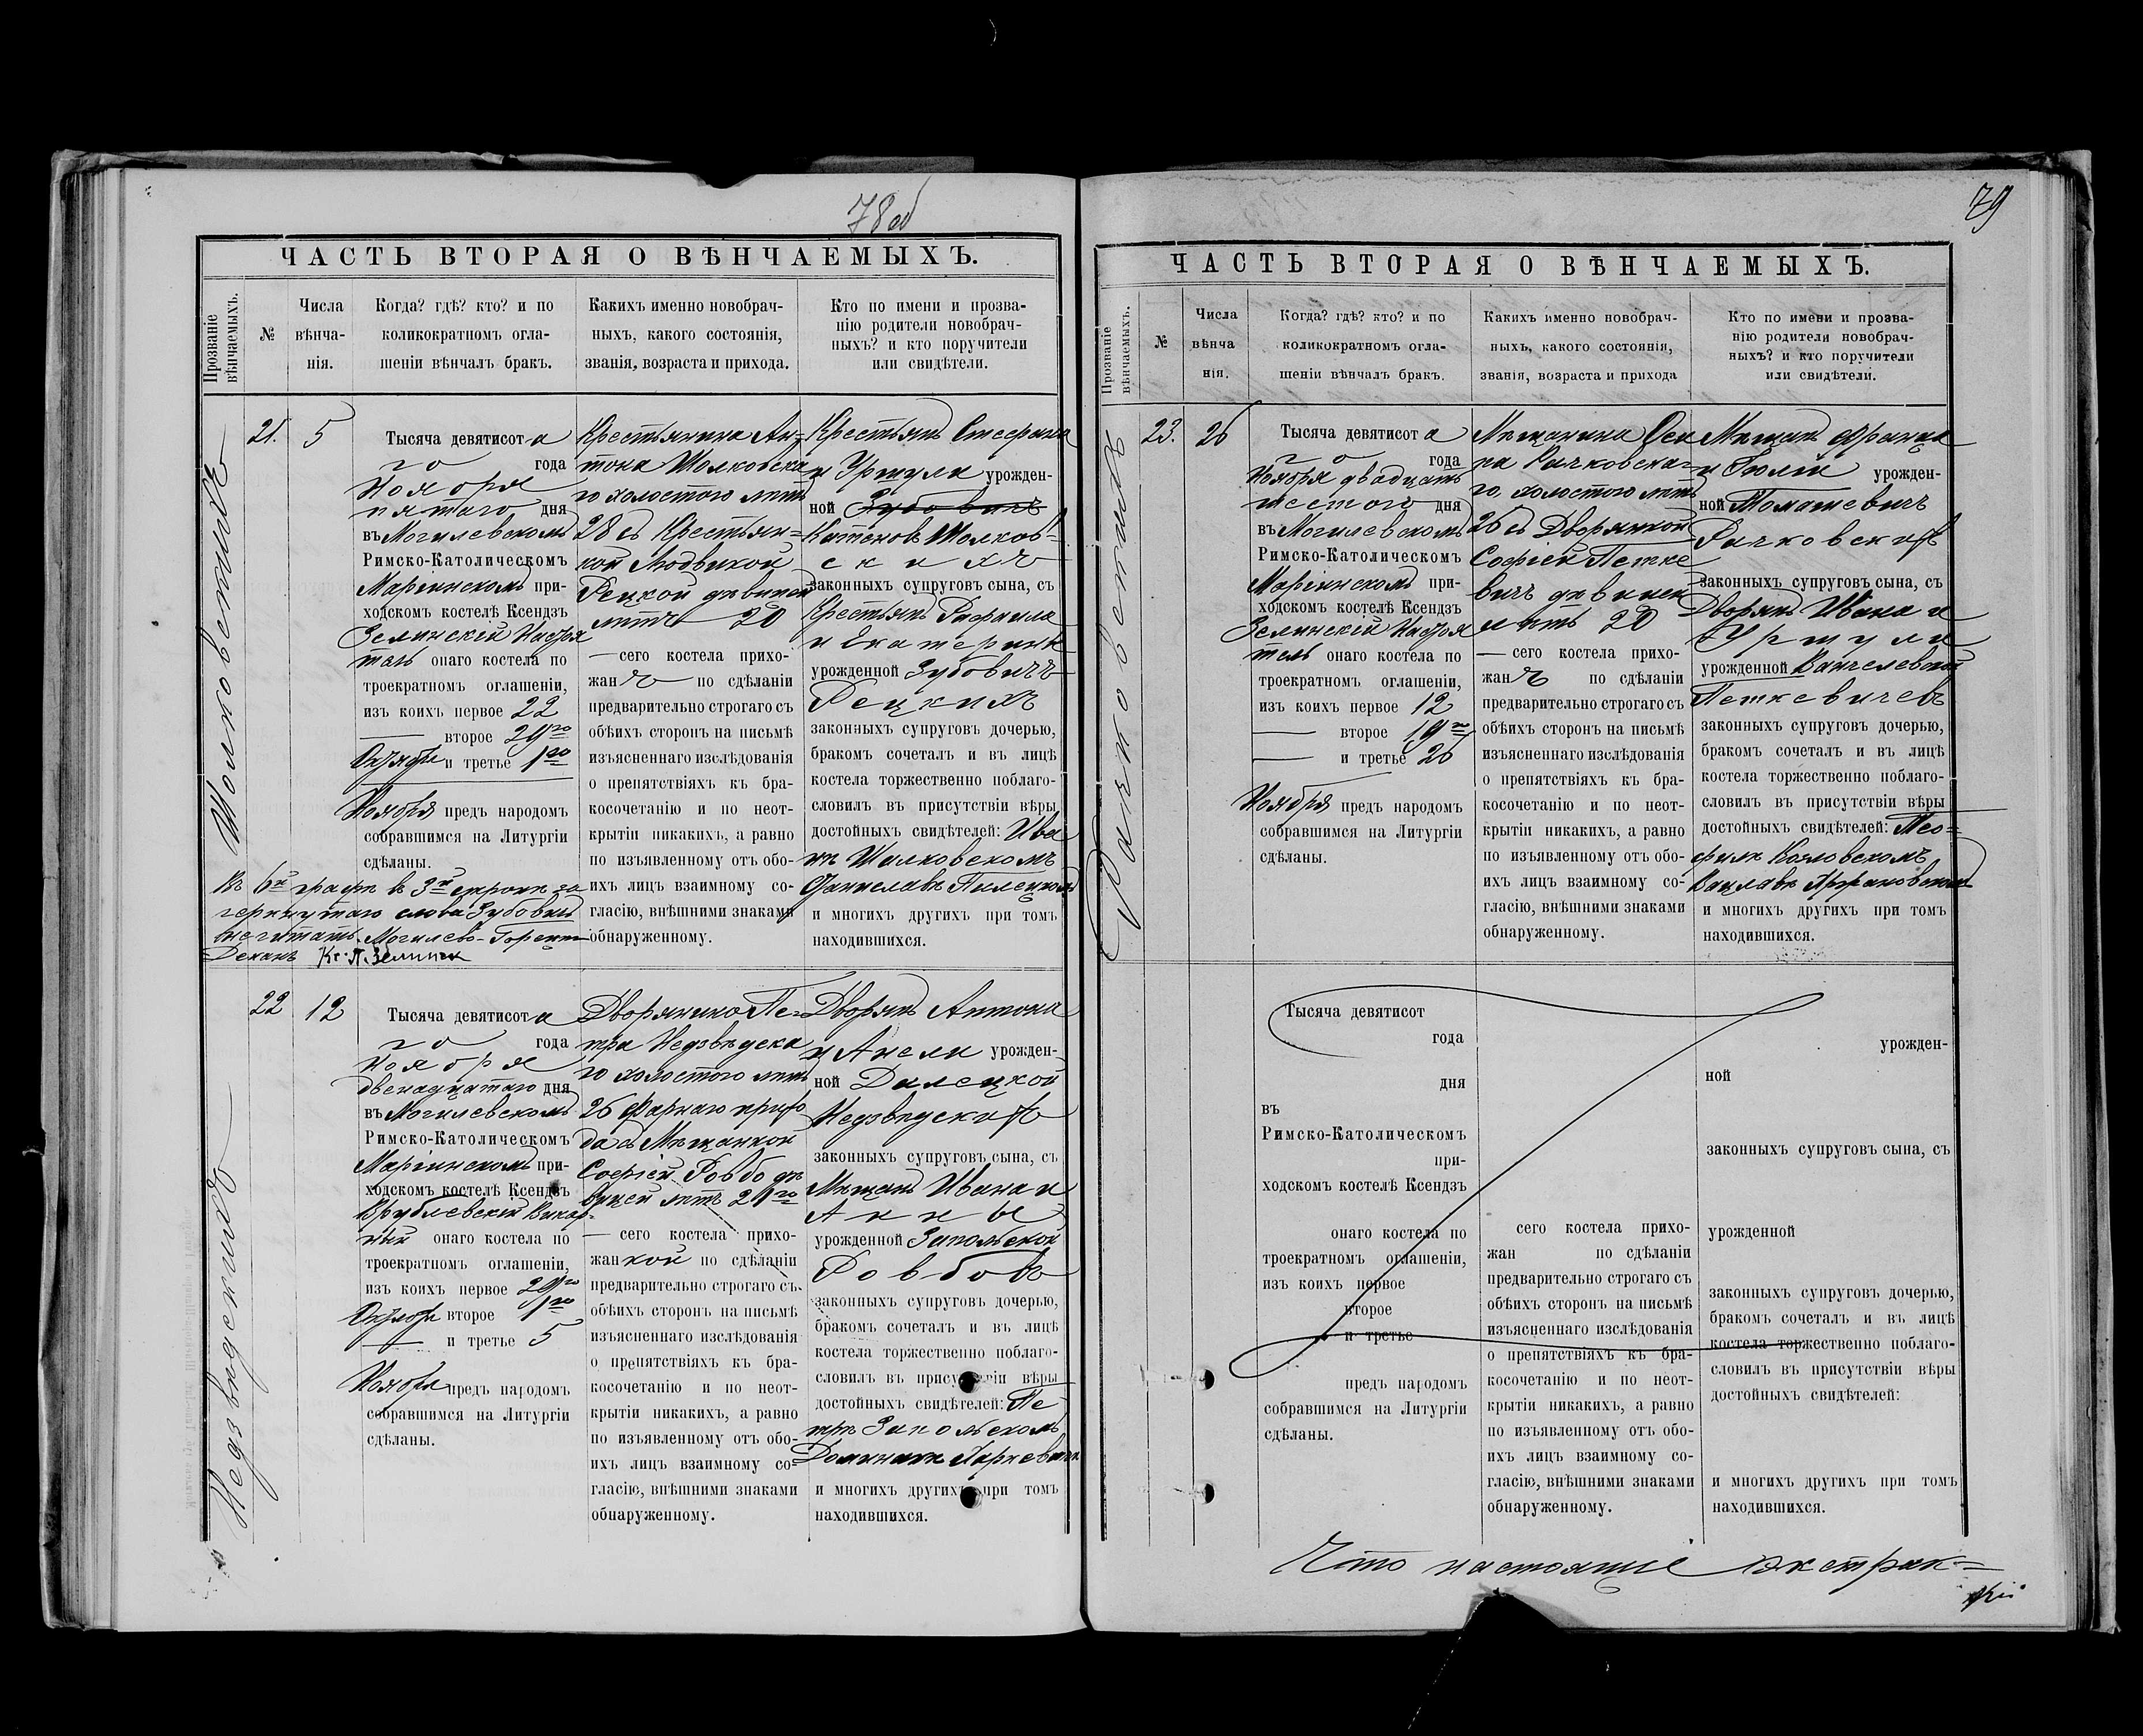 78 об
ЧАСТЬ ВТОРАЯ О ВѢНЧАЕМЫХЪ.
Прозваніе
вѣнчаемыхъ.
№
Числа
вѣнча-
нія.
Когда? гдѣ? кто? и по
коликократномъ огла-
шеніи вѣнчалъ бракъ.
Какихъ именно новобрач-
ныхъ, какого состоянія,
званія, возраста и прихода.
Кто по имени и прозва-
нію родители новобрач-
ныхъ? и кто поручители
или свидѣтели.
21.
5
Тысяча девятисот а
го года
Ноября
пятаго дня
въ Могилевскомъ
Римско-Католическомъ
Маріинскомъ при-
ходскомъ костелѣ Ксендзъ
Зелинскій Настоя
тель онаго костела по
троекратномъ оглашеніи,
изъ коихъ первое 22
второе 29го
Октября и третье 1го
Ноября предъ народомъ
собравшимся на Литургіи
сдѣланы.
Крестьянина Ан-
тона Шолковска
го холостого лѣтъ
28 съ Крестьян-
кой Людвикой
Рецкой дѣвицей
лѣтъ 20
сего костела прихо-
жанъ по сдѣланіи
предварительно строгаго съ
обѣихъ сторонъ на письмѣ
изъясненнаго изслѣдованія
о препятствіяхъ къ бра-
косочетанію и по неот-
крытіи никакихъ, а равно
по изъявленному отъ обо-
ихъ лицъ взаимному со-
гласію, внѣшними знаками
обнаруженному.
Крестьянъ Стефана
и Уршули урожден-
ной Зубовичъ
Шолков-
скихъ
законныхъ супруговъ сына, съ
Крестьянъ Рафаила
и Екатерины
урожденной Зубовичъ
Рецкихъ
законныхъ супруговъ дочерью,
бракомъ сочеталъ и въ лицѣ
костела торжественно поблаго-
словилъ въ присутствіи вѣры
достойныхъ свидѣтелей: Ива
нѣ Шолковскомъ
Станиславѣ Пилецкомъ
и многихъ другихъ при томъ
находившихся.
Въ 6й графѣ в 3й строкѣ за
черкнутаго слова Зубовичъ
не читать. Могилево-Горецкій
Деканъ Кс. П. Зелинск
22
12
Недзвѣдскихъ
Тысяча девятисот а
го года
Ноября
двенадцатаго дня
въ Могилевскомъ
Римско-Католическомъ
Маріинскомъ при-
ходскомъ костелѣ Ксендзъ
Врублевскій Викар-
ный онаго костела по
троекратномъ оглашеніи,
изъ коихъ первое 29го
Октября второе 1го
и третье 5
Ноября предъ народомъ
собравшимся на Литургіи
сдѣланы.
Дворянина Пе-
тра Недзвѣдска
го холостого лѣтъ
26 Фарнаго прихо
да съ Мѣщанкой
Софіей Ровбо дѣ
вицей лѣтъ
сего костела прихо-
жанкой по сдѣланіи
предварительно строгаго съ
обѣихъ сторонъ на письмѣ
изъясненнаго изслѣдованія
о препятствіяхъ къ бра-
косочетанію и по неот-
крытіи никакихъ, а равно
по изъявленному отъ обо-
ихъ лицъ взаимному со-
гласію, внѣшними знаками
обнаруженному.
Дворянъ Антона
и Анели урожден-
ной Далецкой
Недзвѣдскихъ
законныхъ супруговъ сына, съ
Мѣщанъ Ивана и
Анны
урожденной Запольской
Ровбовъ
законныхъ супруговъ дочерью,
бракомъ сочеталъ и въ лицѣ
костела торжественно поблаго-
словилъ въ присутствіи вѣры
достойныхъ свидѣтелей: Пе
трѣ Запольскомъ
Доминикѣ
и многихъ другихъ при томъ
находившихся.
79
ЧАСТЬ ВТОРАЯ О ВѢНЧАЕМЫХЪ.
Прозваніе
вѣнчаемыхъ.
№
Числа
вѣнча
нія.
Когда? гдѣ? кто? и по
коликократномъ огла-
шеніи вѣнчалъ бракъ.
Какихъ именно новобрач-
ныхъ, какого состоянія,
званія, возраста и прихода
Кто по имени и прозва-
нію родители новобрач-
ныхъ? и кто поручители
или свидѣтели.
23.
26
Тысяча девятисот а
го года
Ноября двадцать
шестого дня
въ Могилевскомъ
Римско-Католическомъ
Маріинскомъ при-
ходскомъ костелѣ Ксендзъ
Зелинскій Настоя
тель онаго костела по
троекратномъ оглашеніи,
изъ коихъ первое 12
второе 19го
и третье 26
Ноября предъ народомъ
собравшимся на Литургіи
сдѣланы.
Мѣщанина Оси
па Рачковска-
го, холостого лѣтъ
26 съ Дворянкой
Софіей Петке
вичъ дѣвицей
лѣтъ 20
сего костела прихо-
жанъ по сдѣланіи
предварительно строгаго съ
обѣихъ сторонъ на письмѣ
изъясненнаго изслѣдованія
о препятствіяхъ къ бра-
косочетанію и по неот-
крытіи никакихъ, а равно
по изъявленному отъ обо-
ихъ лицъ взаимному со-
гласію, внѣшними знаками
обнаруженному.
Мѣщанъ Франца
и Юліи урожден-
ной Томашевичъ
Рачковскихъ
законныхъ супруговъ сына, съ
Дворянъ Ивана и
Уршули
урожденной
Петкевичевъ
законныхъ супруговъ дочерью,
бракомъ сочеталъ и въ лицѣ
костела торжественно поблаго-
словилъ въ присутствіи вѣры
достойныхъ свидѣтелей: Тео-
филѣ Козловскомъ
Вацлавѣ
и многихъ другихъ при томъ
находившихся.
Тысяча девятисот
года
дня
въ
Римско-Католическомъ
при-
ходскомъ костелѣ Ксендзъ
онаго костела по
троекратномъ оглашеніи,
изъ коихъ первое
второе
и третье
предъ народомъ
собравшимся на Литургіи
сдѣланы.
сего костела прихо-
жан по сдѣланіи
предварительно строгаго съ
обѣихъ сторонъ на письмѣ
изъясненнаго изслѣдованія
о препятствіяхъ къ бра-
косочетанію и по неот-
крытіи никакихъ, а равно
по изъявленному отъ обо-
ихъ лицъ взаимному со-
гласію, внѣшними знаками
обнаруженному.
урожден-
ной
законныхъ супруговъ сына, съ
урожденной
законныхъ супруговъ дочерью,
бракомъ сочеталъ и въ лицѣ
костела торжественно поблаго-
словилъ въ присутствіи вѣры
достойныхъ свидѣтелей:
и многихъ другихъ при томъ
находившихся.
Что настоящіе экстрак-